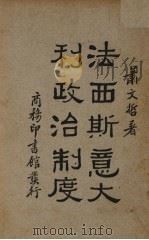 蕭文哲著
法西斯意大
利政治制度
商務印書館發行